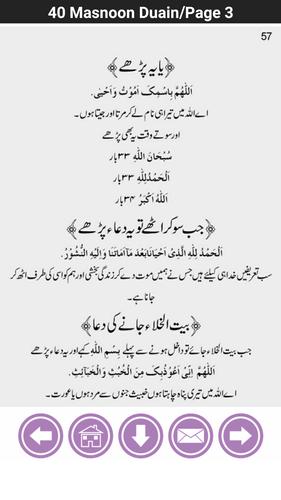 40 Masnoon Duain/Page 3
57
﴿یا یہ پڑھے﴾
اَللّٰهُمَّ بِاسْمِكَ اَمُوْتُ وَاَحْيٰى.
اے اللہ میں تیرا ہی نام لے کر مرتا اور جیتا ہوں۔
اور سوتے وقت یہ بھی پڑھے
سُبْحَانَ اللّٰهِ ۳۳ بار
اَلْحَمْدُ لِلّٰهِ ۳۳ بار
اَللّٰهُ اَكْبَرُ ۳۴ بار
﴿جب سو کر اٹھے تو یہ دعاء پڑھے﴾
اَلْحَمْدُ لِلّٰهِ الَّذِیْ اَحْيَانَا بَعْدَ مَا اَمَاتَنَا وَاِلَيْهِ النُّشُوْرُ.
سب تعریفیں خدا ہی کیلئے ہیں جس نے ہمیں موت دے کر زندگی بخشی اور ہم کو اسی کی طرف اٹھ کر
جانا ہے۔
﴿بیت الخلاء جانے کی دعا﴾
جب بیت الخلاء جائے تو داخل ہونے سے پہلے بِسْمِ اللّٰهِ کہے اور یہ دعاء پڑھے
اَللّٰهُمَّ اِنِّیْ اَعُوْذُ بِكَ مِنَ الْخُبُثِ وَالْخَبَائِثِ.
اے اللہ میں تیری پناہ چاہتا ہوں خبیث جنوں سے مرد ہوں یا عورت۔